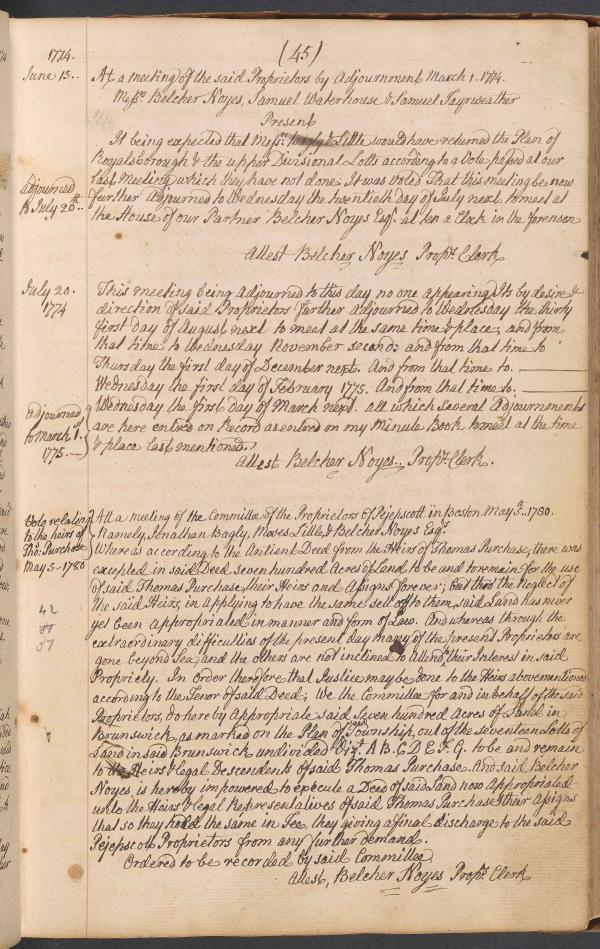 (45)
1774.
June 15..
At a meeting of the said Proprietors by Adjournment March 1. 1774.
Messrs. Belcher Noyes, Samuel Waterhouse & Samuel Fayrweather
Present
It being expected that Messrs. Bagly & Little would have returned the Plan of
Royalsborough & the upper Divisional Lotts according to a Vote passed at our
last Meeting which they have not done. It was Voted That this meeting be now
further Adjourned to Wednesday the twentieth day of July next to meet at
the House of our Partner Belcher Noyes Esqr. at ten a Clock in the forenoon
adjourned
to July 20th..
Attest Belcher Noyes Proprs. Clerk
July 20.
1774
This meeting being Adjourned to this day no one appearing. Its by desire &
direction of said Proprietors further adjourned to Wednesday the thirty
first day of August next to meet at the same time & place, and from
that time to Wednesday November second: and from that time to
Thursday the first day of December next. And from that time to.
Wednesday the first day of February 1775. And from that time to.
Wednesday the first day of March next. all which several Adjournments
are here entred on Record as entred on my Minute Book to meet at the time
& place last mentioned.
adjourned
to March 1st.
1775.
Attest Belcher Noyes.. Propr. Clerk.
Vote relating
to the heirs of
Tho: Purchase
May 5. 1780
42
57
At a meeting of the Committee of the Proprietors of Pejepscott in Boston May 5th. 1780.
Namely, Jonathan Bagly, Moses Little, & Belcher Noyes Esqrs.
Whereas according to the Antient Deed from the Heirs of Thomas Purchase, there was
excepted in said Deed seven hundred Acres of Land to be and to remain for the use
of said Thomas Purchase, their Heirs and Assigns forever; but thro' the Neglect of
the said Heirs, in applying to have the same sett off to them, said Land has never
yet been appropriated in manner and form of Law. And whereas through the
extraordinary difficulties of the present day many of the present Proprietors are
gone beyond Sea, and the others are not inclined to Attend their Interest in said
Propriety. In Order therefore that Justice may be done to the Heirs abovementioned
according to the Tenor of said Deed; We the Committee for and in behalf of the said
Proprietors, do hereby Appropriate said seven hundred Acres of Land in
Brunswick, as marked on the Plan of said Township, out of the seventeen Lotts of
Land in said Brunswick undivided Vizt. A B C D E F. G. to be and remain
to the Heirs & legal Descendents of said Thomas Purchase. And said Belcher
Noyes, is hereby impowered to execute a Deed of said Land now Appropriated
unto the Heirs & legal Representatives of said Thomas Purchase & their Assigns
that so they hold the same in Fee, they giving a final discharge to the said
Pejepscott Proprietors from any further demand.
Ordered to be recorded by said Committee
Attest, Belcher Noyes Propr. Clerk